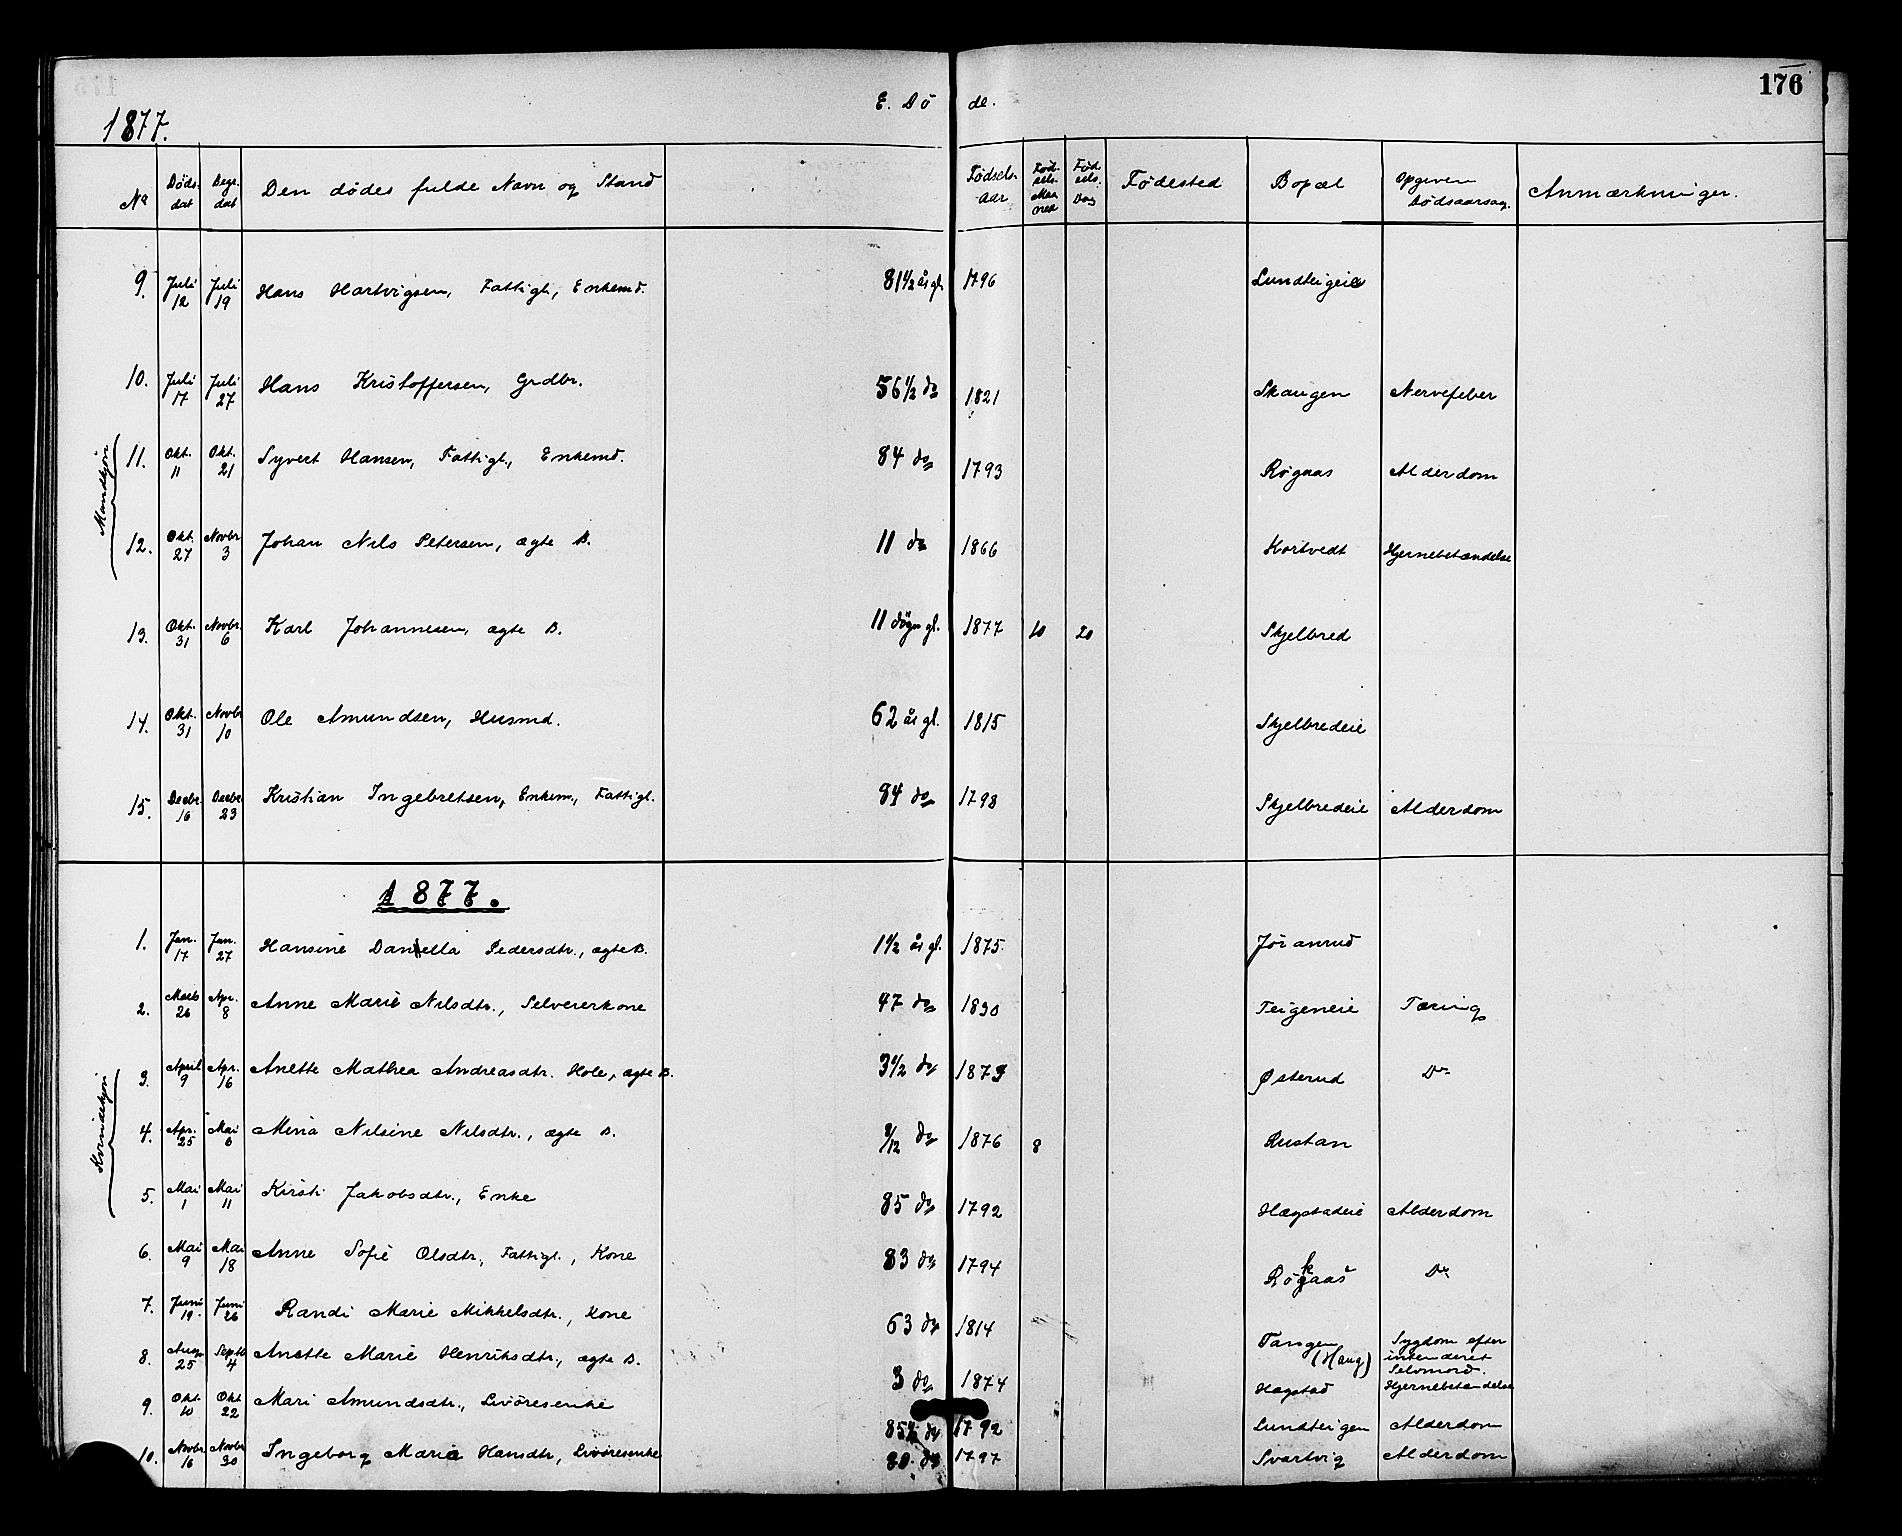 176
1877.
E. Døde.
No Døds. dat Begr. dat Den dødes fulde Navn og Stand Fødsels. aar Fød. sels. Maa ned Fød. sels. Dag Fødested Bopæl Opgiven Dødsaarsag. Anmærkninger.
Mandkjøn
9. Juli 12 Juli 19 Hans Hartvigsen, Fattigl., Enkemd. 81 1/2 år gl. 1796 Lundteigeie
10. Juli 17 Juli 27 Hans Kristoffersen, Grdbr. 56 1/2 do 1821 Skaugen Nervefeber
11. Okt. 11 Okt. 21 Syvert Hansen, Fattigl., Enkemd. 84 do 1793 Røgaas Alderdom
12. Okt. 27 Novbr 3 Johan Nils Petersen, ægte B. 11 do 1866 Kortvedt Hjernebetændelse
13. Okt. 31 Novbr. 6 Karl Johannesen, ægte B. 11 døgn gl. 1877 10 20 Skjelbred
14. Okt. 31 Novbr 10 Ole Amundsen, Husmd. 62 år gl. 1815 Skjelbredeie
15. Decbr. 16 Decbr. 23 Kristian Ingebretsen, Enkem., Fattigl. 84 do 1798 Skjelbredeie Alderdom
1877.
Kvindekjøn
1. Jan. 17 Jan. 27 Hansine Daniella Pedersdtr., ægte B. 1 1/2 år gl. 1875. Jøranrud
2. Marts 26 Apr. 8 Anne Marie Nilsdtr., Selveierkone 47 do 1830 Teigeneie Tæring
3. April 9 Apr. 16 Anette Mathea Andreasdtr. Hole, ægte B. 3 1/2 do 1873 Østerud Do
4. Apr. 25 Mai 6 Mina Nilsine Nilsdtr., ægte B. 8/12 do 1876 8 Rustan
5. Mai 1 Mai 11 Kirsti Jakobsdtr., Enke 85 do 1792 Hægstadeie Alderdom
6. Mai 9 Mai 18 Anne Sofie Olsdtr., Fattigl., Kone 83 do 1794 Røkaas Do
7. Juni 19. Juni 26 Randi Marie Mikkelsdtr., Kone 63 do 1814 Tangen (Haug) Sygdom efter intenderet Selvmord.
8. Aug 25 Septb 4 Anette Marie Henriksdtr., ægte B. 3 do 1874 Hægstad Hjernebetændelse
9. Okt. 10 Okt 22 Mari Amundsdtr., Livøresenke 85 1/2 do 1792 Lundteigen Alderdom
10. Novbr 16 Novbr 30 Ingeborg Marie Hansdtr, Livøresenke 80 do 1797 Svartvig Alderdom